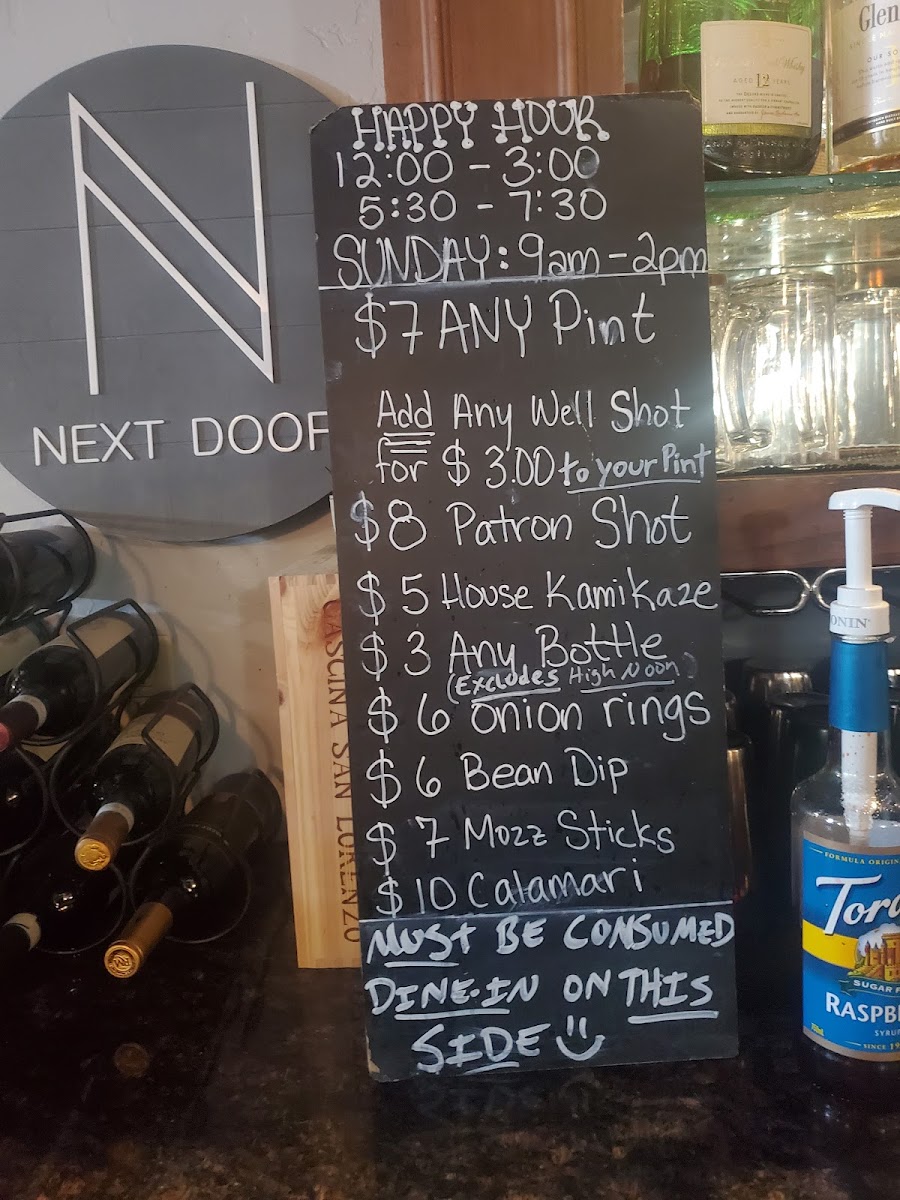 N
NEXT DOOR
HAPPY HOUR
12:00 - 3:00
5:30 - 7:30
SUNDAY: 9am - 2pm
$7 ANY Pint
Add Any Well Shot
for $3.00 to your Pint
$8 Patron Shot
$5 House Kamikaze
$3 Any Bottle
(Excludes High Noon)
$6 Onion rings
$6 Bean Dip
$7 Mozz Sticks
$10 Calamari
MUST BE CONSUMED
DINE-IN ON THIS
SIDE
CASCINA SAN LORENZO
AGED 12 YEARS
Glen
ONIN
FORMULA ORIGIN
Tora
SUGAR F
RASPBE
SYRU
SINCE 19